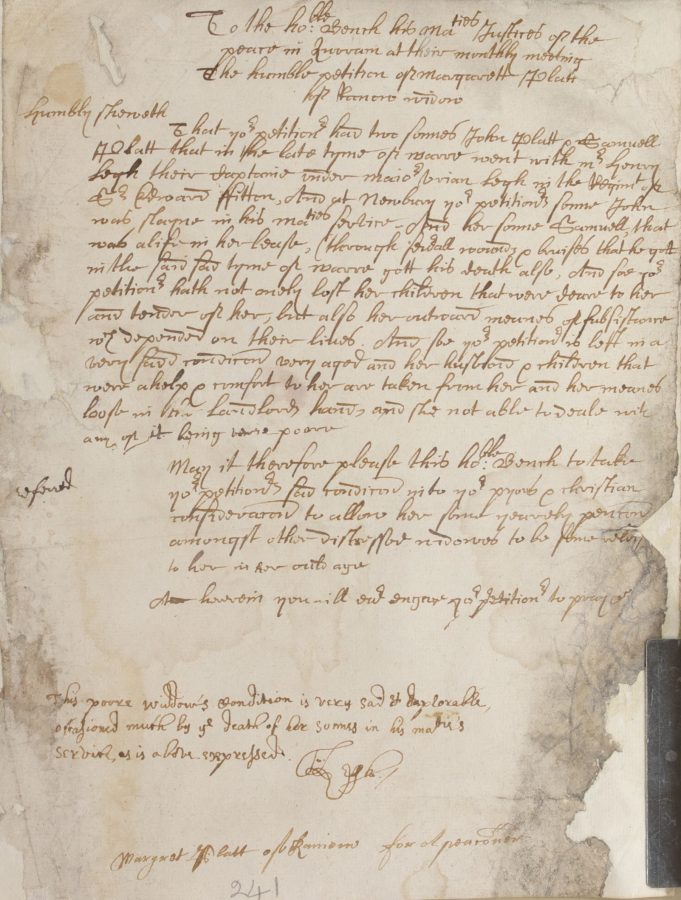 To the ho:ble Bench his Ma:ties Justices of the
peace in at their monthly meeting
The humble petition of Margarett Platt
of widow
Humbly sheweth
That yor petitionr had two sonnes John Platt & Samuell
Platt that in the late tyme of warre went with mr Henry
Legh their Captaine under maior Urian Legh in the Regimt of
Sr Edward ffitton, And at Newbury yor petitionrs sonne John
was slayne in his maties service, And her sonne Samuell, that
was a life in her lease, (through sevrall wounds & bruises that he gott
in the said sad tyme of warre gott his death also, And soe yor
petitionr hath not onely lost her children that were deare to her
and tender of her, but also her outward meanes of subsistance
wch depended on their lives. And soe yor petitionr is left in a
very sadd condicon very aged and her husband & children that
were a help & comfort to her are taken from her and her meanes
loose in Landlords hands and she not able to deale with
any of it being verie poore
May it therefore please this ho:ble Bench to take
yor petitionrs sad condicon into yor pyous & christian
consideracon to allow her some yearely pencon
amongst other distressed widowes to be some
to her in her ould age
And herein you will evr engage yor petitionr to pray &c
refered
This poore widdow's Condition is very sad & deplorable,
occasioned much by ye death of her sonnes in his matie's
service, as is above expressed.
Margret Platt of for a
241